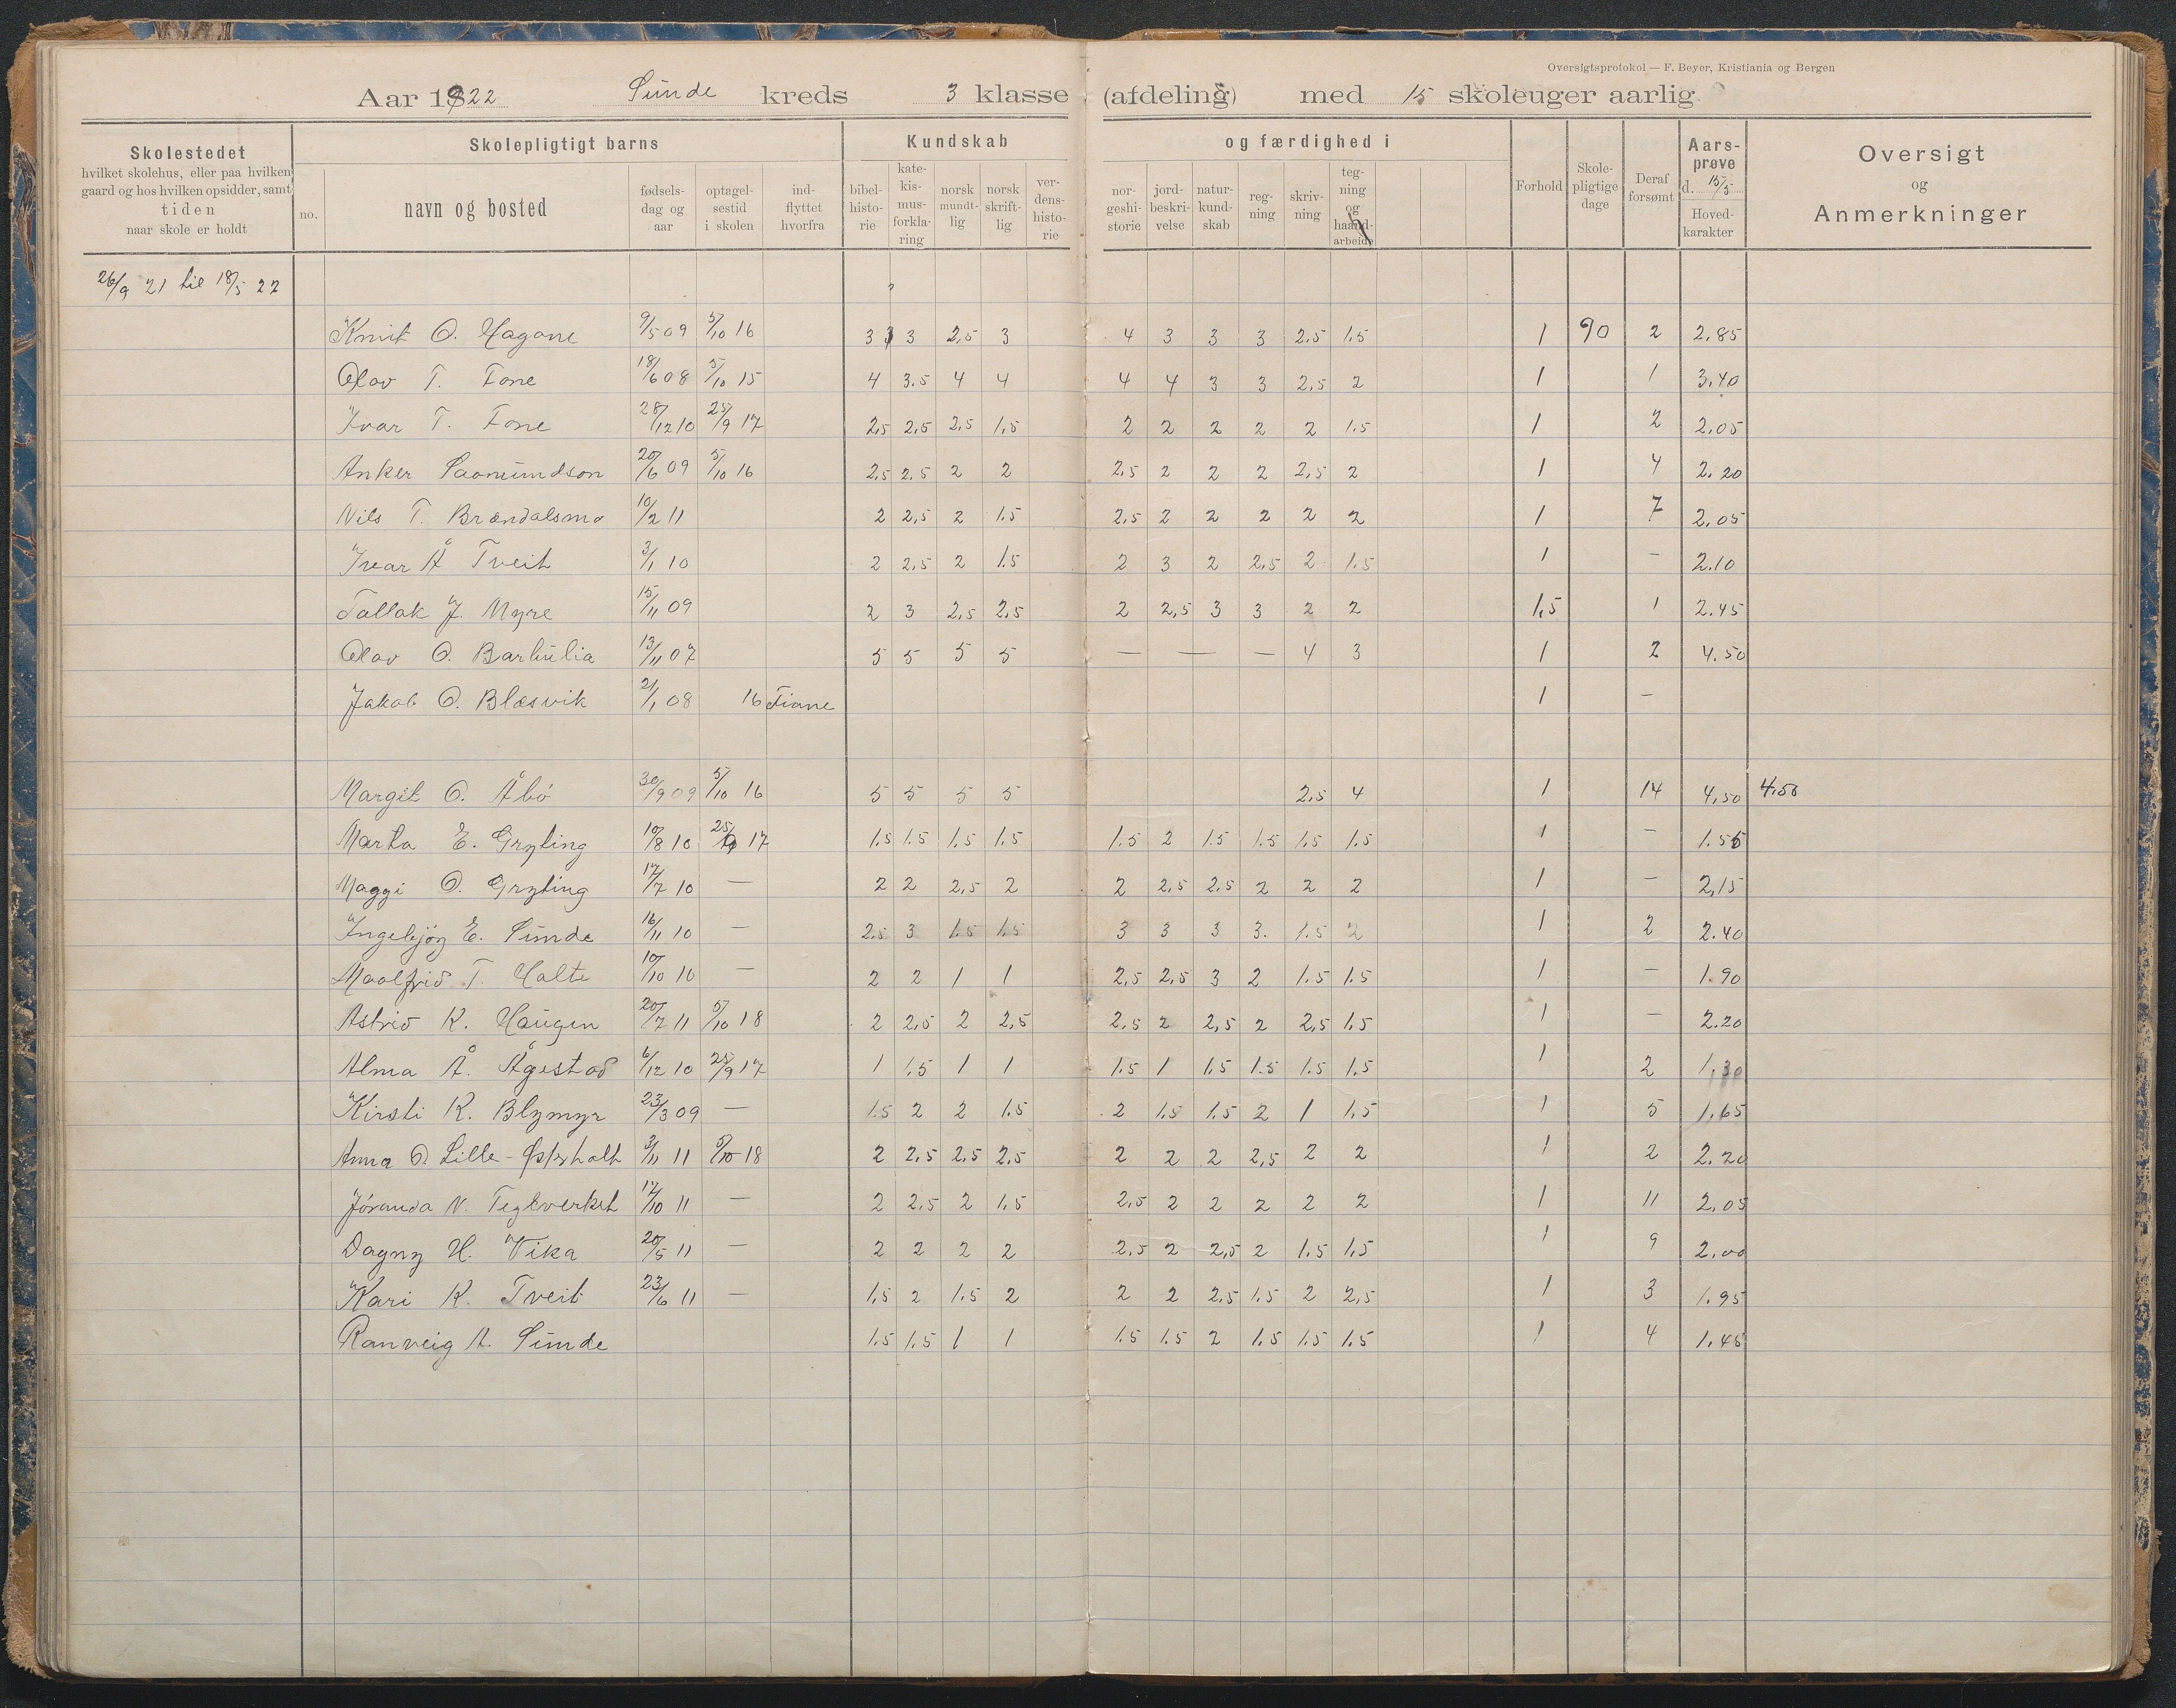 Oversigtsprotokol — F. Beyer, Kristiania og Bergen
Aar 1922 Sunde kreds 3 klasse (afdeling) med 15 skoleuger aarlig
Skolestedet hvilket skolehus, eller paa hvilken gaard og hos hvilken opsidder, samt tiden naar skole er holdt
Skolepligtigt barns
no. navn og bosted fødselsdag og aar optagelsestid i skolen indflyttet hvorfra
Kundskab og færdighed i
bibelhistorie katekismusforklaring norsk mundtlig norsk skriftlig verdenshistorie norgeshistorie jordbeskrivelse naturkundskab regning skrivning tegning og haandarbeide
Forhold Skolepligtige dage Deraf forsømt Aarsprøve d. 15/5 Hovedkarakter
Oversigt og Anmerkninger
26/9 21 til 18/5 22
Knut O. Hagane 9/5 09 5/10 16 3 3 2,5 3 4 3 3 3 2.5 1.5 1 90 2 2.85
Olav T. Fone 18/6 08 5/10 15 4 3.5 4 4 4 4 3 3 2,5 2 1 1 3.40
Ivar T. Fone 28/12 10 25/9 17 2,5 2,5 2,5 1,5 2 2 2 2 2 1.5 1 2 2.05
Anker Saomundson 20/6 09 5/10 16 2,5 2,5 2 2 2,5 2 2 2 2,5 2 1 4 2.20
Nils T. Brændalsmo 10/2 11 2 2,5 2 1.5 2,5 2 2 2 2 2 1 7 2.05
Ivar Å Tveit 3/1 10 2 2,5 2 1.5 2 3 2 2,5 2 1.5 1 — 2.10
Tallak J. Myre 15/11 09 2 3 2,5 2,5 2 2,5 3 3 2 2 1,5 1 2.45
Olav O. Barlulia 13/11 07 5 5 5 5 — — — 4 3 1 2 4.50
Jakob O. Blæsvik 2/1 08 16 Fiane 1 —
Margit O. Åbö 30/9 09 5/10 16 5 5 5 5 2.5 4 1 14 4,50 4.50
Marta E. Gryting 10/8 10 25/9 17 1.5 1.5 1.5 1.5 1.5 2 1.5 1.5 1.5 1.5 1 — 1.55
Maggi O. Gryting 17/7 10 — 2 2 2,5 2 2 2,5 2,5 2 2 2 1 — 2,15
Ingebjörg E. Sunde 16/11 10 — 2.5 3 1.5 1.5 3 3 3 3. 1.5 2 1 2 2.40
Maalfrid T. Halte 10/10 10 — 2 2 1 1 2,5 2,5 3 2 1.5 1.5 1 — 1.90
Astrid K. Haugen 20/7 11 5/10 18 2 2,5 2 2,5 2,5 2 2,5 2 2,5 1.5 1 — 2.20
Alma Å. Ågestad 6/12 10 25/9 17 1 1.5 1 1 1.5 1 1.5 1.5 1.5 1.5 1 2 1,30
Kirsti K. Blymyr 23/3 09 — 1.5 2 2 1.5 2 1.5 1.5 2 1 1.5 1 5 1.65
Anna O. Lille-Østerholt 3/11 11 5/10 18 2 2,5 2.5 2,5 2 2 2 2,5 2 2 1 2 2.20
Jöranda N. Teglverket 17/10 11 — 2 2,5 2 1.5 2,5 2 2 2 2 2 1 11 2,05
Dagny H. Vika 20/5 11 — 2 2 2 2 2,5 2 2,5 2 1.5 1,5 1 9 2.00
Kari K. Tveit 23/6 11 — 1,5 2 1.5 2 2 2 2,5 1.5 2 2,5 1 3 1.95
Ranveig A. Sunde 1.5 1.5 1 1 1.5 1.5 2 1.5 1.5 1.5 1 4 1.45